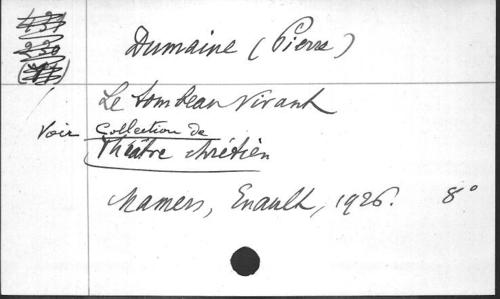 Dumaine (Pierre)
Le tombeau vivant
Voir Collection de
Théâtre chrétien
Mamers, Enault, 1926. 8°